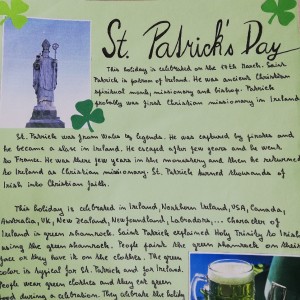 St. Patrick's Day
This holiday is celebrated on the 17th March. Saint
Patrick is patron of Ireland. He was ancient Christian
spiritual monk, missionary and bishop. Patrick
probally was first Christian missionary in Ireland
St. Patrick was from Wales by legends. He was captured by pirates and
he became a slave in Ireland. He escaped after few years and he went
to France. He was there few years in the monastery and then he returned
to Ireland as Christian missionary. St. Patrick turned thousands of
Irish into Christian faith.
This holiday is celebrated in Ireland, Northern Ireland, USA, Canada,
Australia, UK, New Zealand, Newfoundland, Labradora,... Character of
Ireland is green shamrock. Saint Patrick explained Holy Trinity to Irish
using the green shamrock. People paint the green shamrock on their
face or they have it on the clothes. The green
color is typical for St. Patrick and for Ireland.
People wear green clothes and they eat green
food during a celebration. They celebrate the holiday